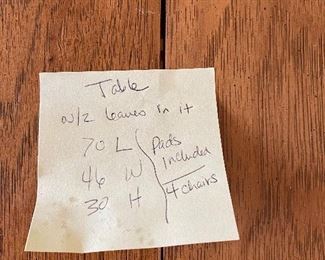 Table
w/2 leaves in it
70 L
46 W
30 H
Pads
included
4 chairs